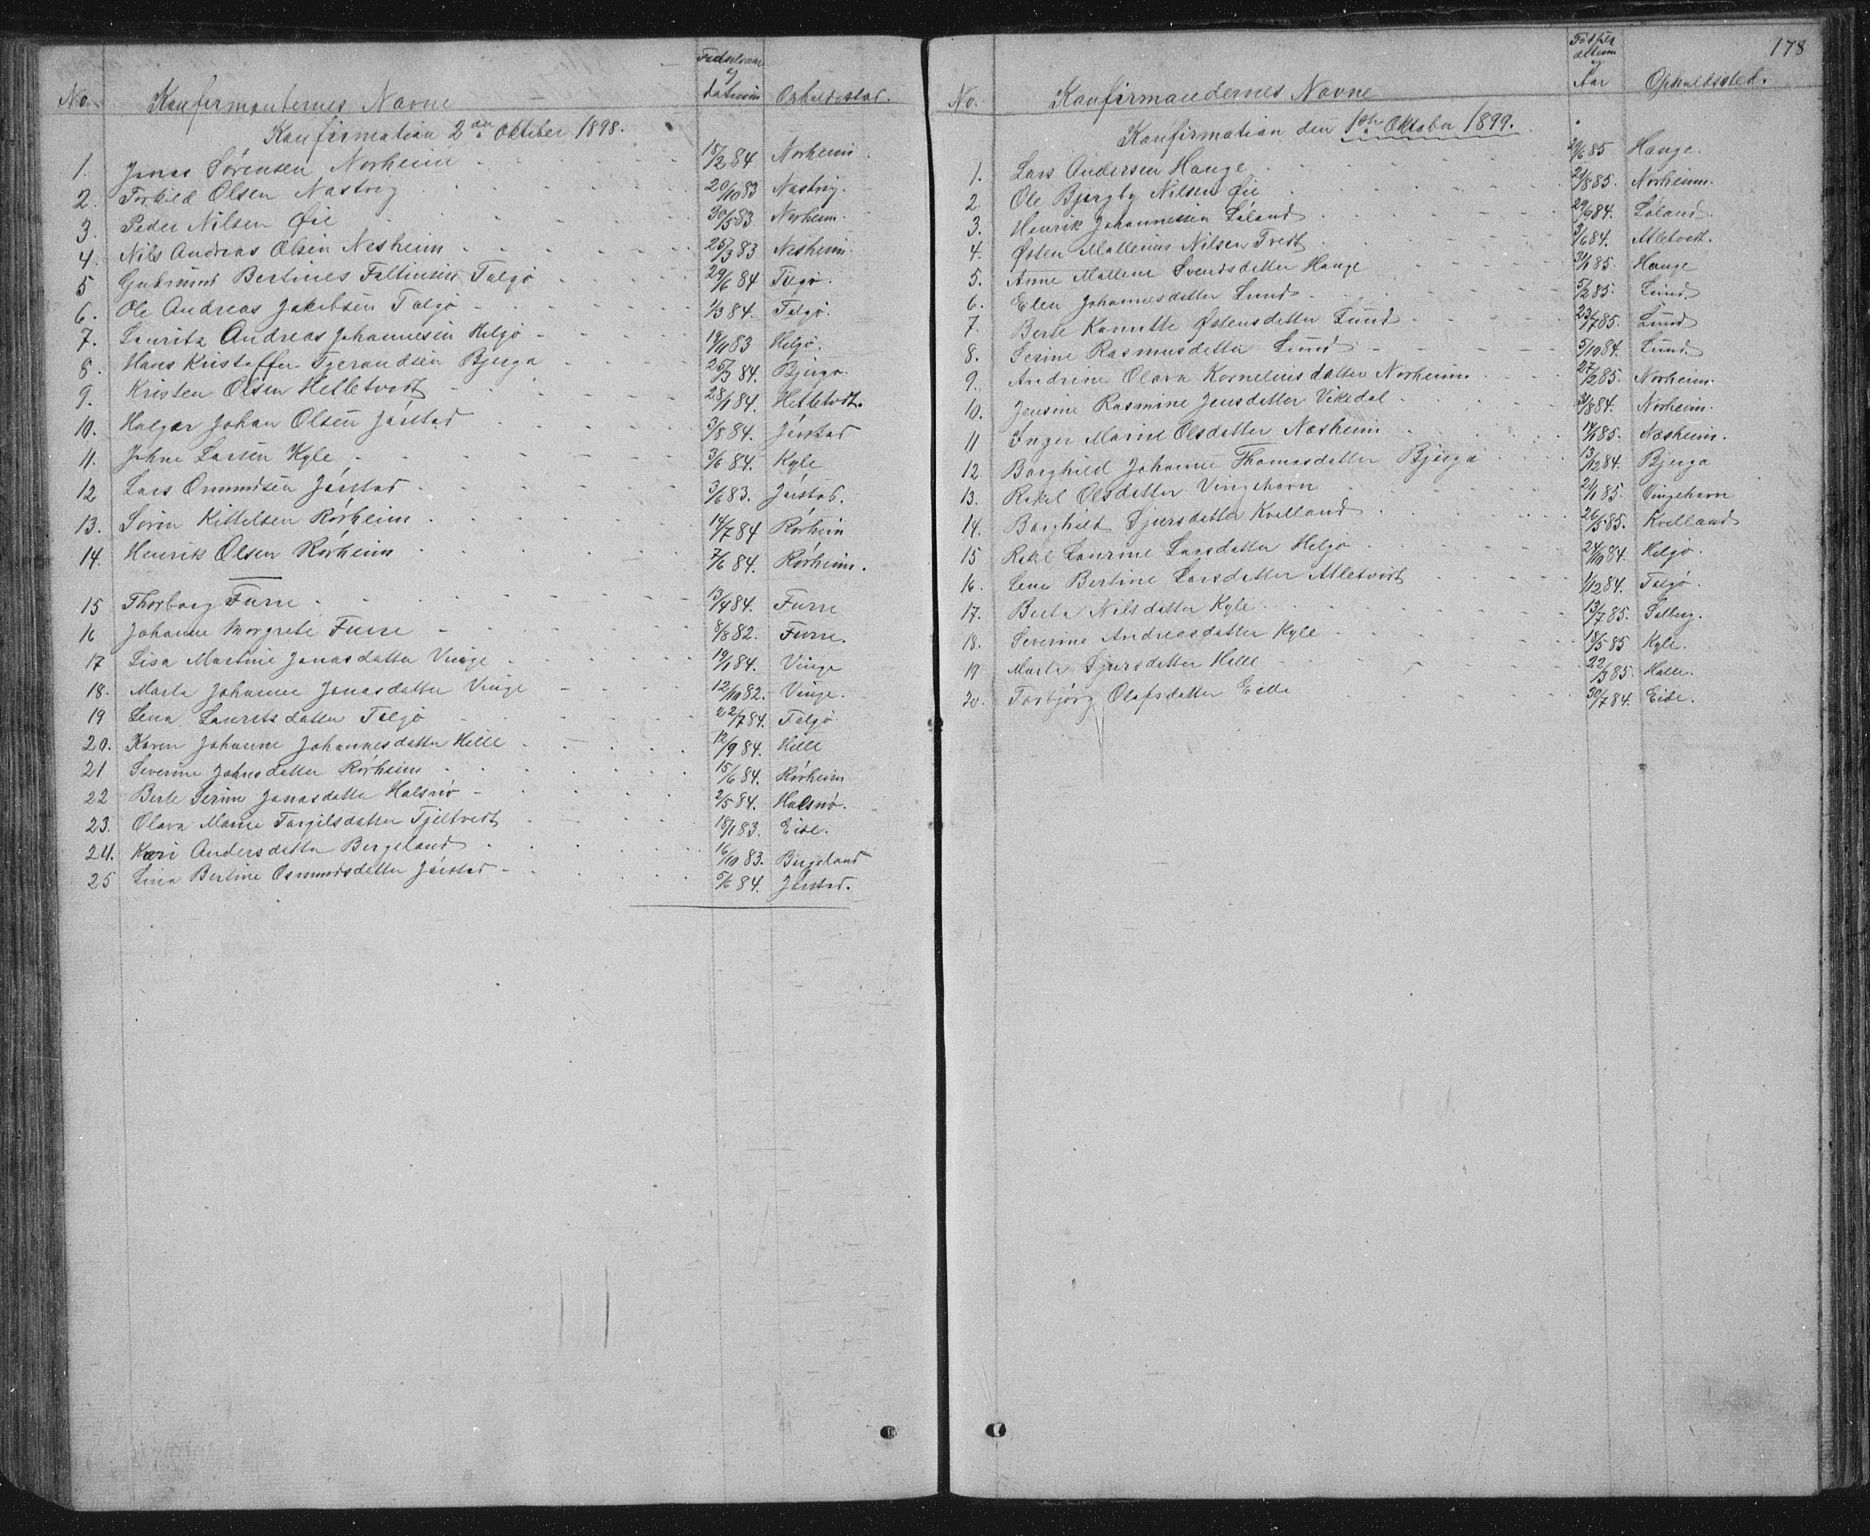 No. Konfirmanternes Navne Fødselsaar og datum Opholdsstad.
Konfirmation 2den Oktober 1898.
1. Jonas Sørensen Norheim 15/2 84 Norheim
2. Torkild Olsen Nastvig 20/10 83 Nastvig.
3. Peder Nilsen Øie 30/5 83 Norheim.
4. Nils Andreas Olsen Nesheim 25/3 83 Nesheim
5 Gudmund Bertines Faltinsen Talgø 29/6 84 Talgø.
6. Ole Andreas Jakobsen Talgø 1/3 84. Talgø.
7. Laurits Andreas Johannesen Helgø 19/11 83 Helgø.
8. Hans Kristoffer Tjerandsen Bjerga 25/3 84. Bjerga.
9. Kristen Olsen Hetletvedt 28/1 84. Hetletvdt.
10. Holger Johan Olsen Jørstad 3/8 84. Jørstad
11. Johne Larsen Kyle 3/6 84. Kyle
12 Lars Osmundsen Jørstad 3/6 83. Jørstad.
13. Søren Kittelsen Rørheim 14/7 84 Rørheim
14. Henrik Olsen Rørheim 7/6 84. Rørheim.
15 Thorborg Furre 13/4 84. Furre
16 Johanne Margrete Furre 8/8 82. Furre.
17 Lisa Martine Jonasdatter Vinge 19/1 84. Vinge
18. Marta Johanne Jonasdatter Vinge 12/10 82. Vinge.
19 Lena Lauritsdatter Talgø 22/7 84. Talgø
20. Karen Johanne Johannesdatter Helle 12/9 84. Helle
21 Severine Johnsdatter Rørheim 15/6 84. Rørheim
22 Berte Serine Jonasdatter Halsnø 2/5 84. Halsnø.
23. Olava Marie Torgilsdatter Tjeltvedt 18/1 83. Eide.
24. Kari Andersdatter Bergeland 16/10 83. Bergeland
25 Lina Bertine Osmundsdatter Jørstad 5/6 84. Jørstad.
178
No. Konfirmandernes Navne Aar Opholdssted.
Konfirmation den 1ste Oktober 1899.
1. Lars Andersen Hauge 29/6 85 Hauge.
2. Ole Bjergby Nilsen Øie 21/8 85. Norheim.
3. Henrik Johannessen Løland 29/9 84. Løland
4. Østen Mallenius Nilsen Tvedt 3/6 84. Atletvedt.
5. Anne Mallene Svendsdatter Hauge 31/1 85. Hauge
6. Elen Johannesdatter Lund 5/2 85. Lund
7. Berte Kanutte Østensdatter Lund 23/7 85. Lund
8. Serine Rasmusdatter Lund 5/10 84. Lund
9. Andrine Olava Korneliusdatter Norheim 27/2 85. Norheim.
10. Jensine Rasmine Jensdatter Vikedal 31/8 84. Norheim.
11 Inger Marine Olsdatter Nesheim 14/1 85. Nesheim.
12. Borghild Johanne Thomasdatter Bjerga 13/12 84. Bjerga
13. Rakel Olsdatter Vingehavn 21/1 85. Vingehavn
14. Borghild Sjursdatter Kvelland 26/5 85. Kvelland
15 Rakel Laurine Larsdatter Helgø 24/10 84. Helgø.
16. Lene Bertine Larsdatter Atletvedt 1/12 84. Talgø.
17. Berta Nilsdatter Kyle 13/7 85. Selberg.
18. Severine Andreasdatter Kyle 18/5 85 Kyle.
19 Marta Sjursdatter Helle 22/3 85. Helle.
20. Torbjørg Olafsdatter Eide 30/7 84. Eide.